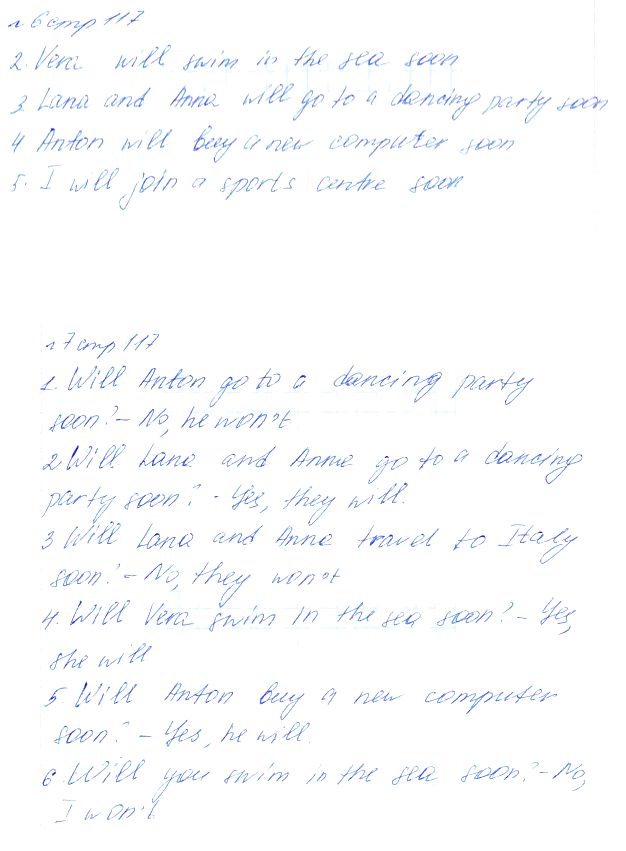 №6 стр 117
2. Vera will swim in the sea soon
3. Lana and Anna will go to a dancing party soon
4 Anton will buy a new computer soon
5. I will join a sports centre soon
№7 стр 117
1. Will Anton go to a dancing party
soon? - No, he won't
2 Will Lana and Anna go to a dancing
party soon? - Yes, they will.
3 Will Lana and Anna travel to Italy
soon? - No, they won't
4. Will Vera swim in the sea soon? - Yes,
she will
5. Will Anton buy a new computer
soon? - Yes, he will.
6. Will you swim in the sea soon? - No,
I won't